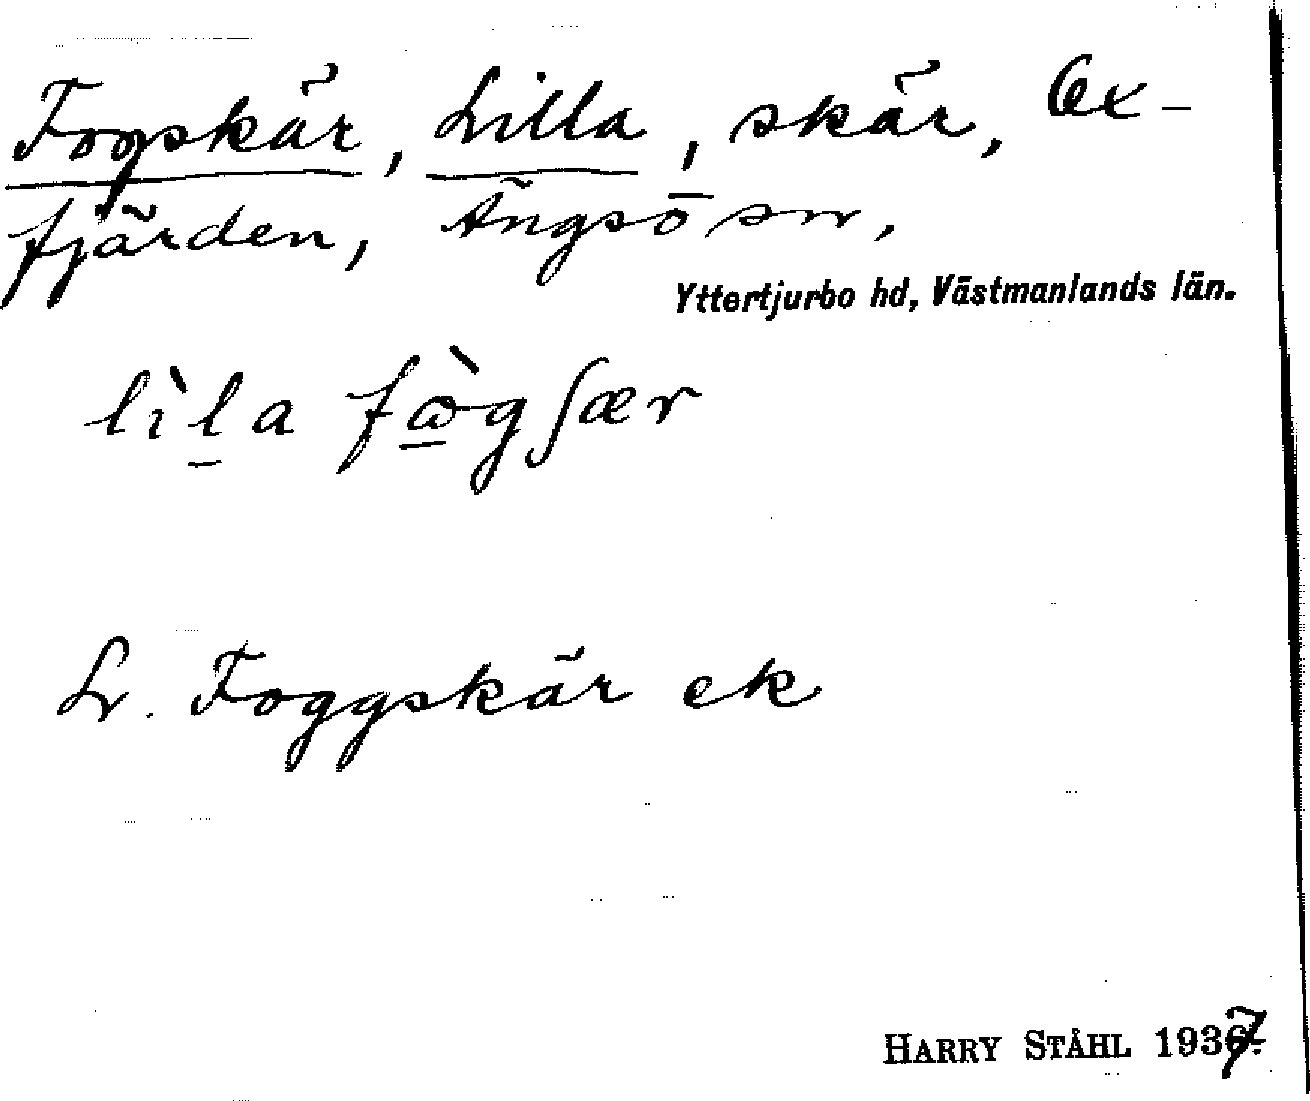 Fogskär, Lilla, skär, Ox-
fjärden, Ängsö sn,
Yttertjurbo hd, Västmanlands län.
lìl̠a fὼ̠gʃær
L. Foggskär ek
HARRY STÅHL 1937